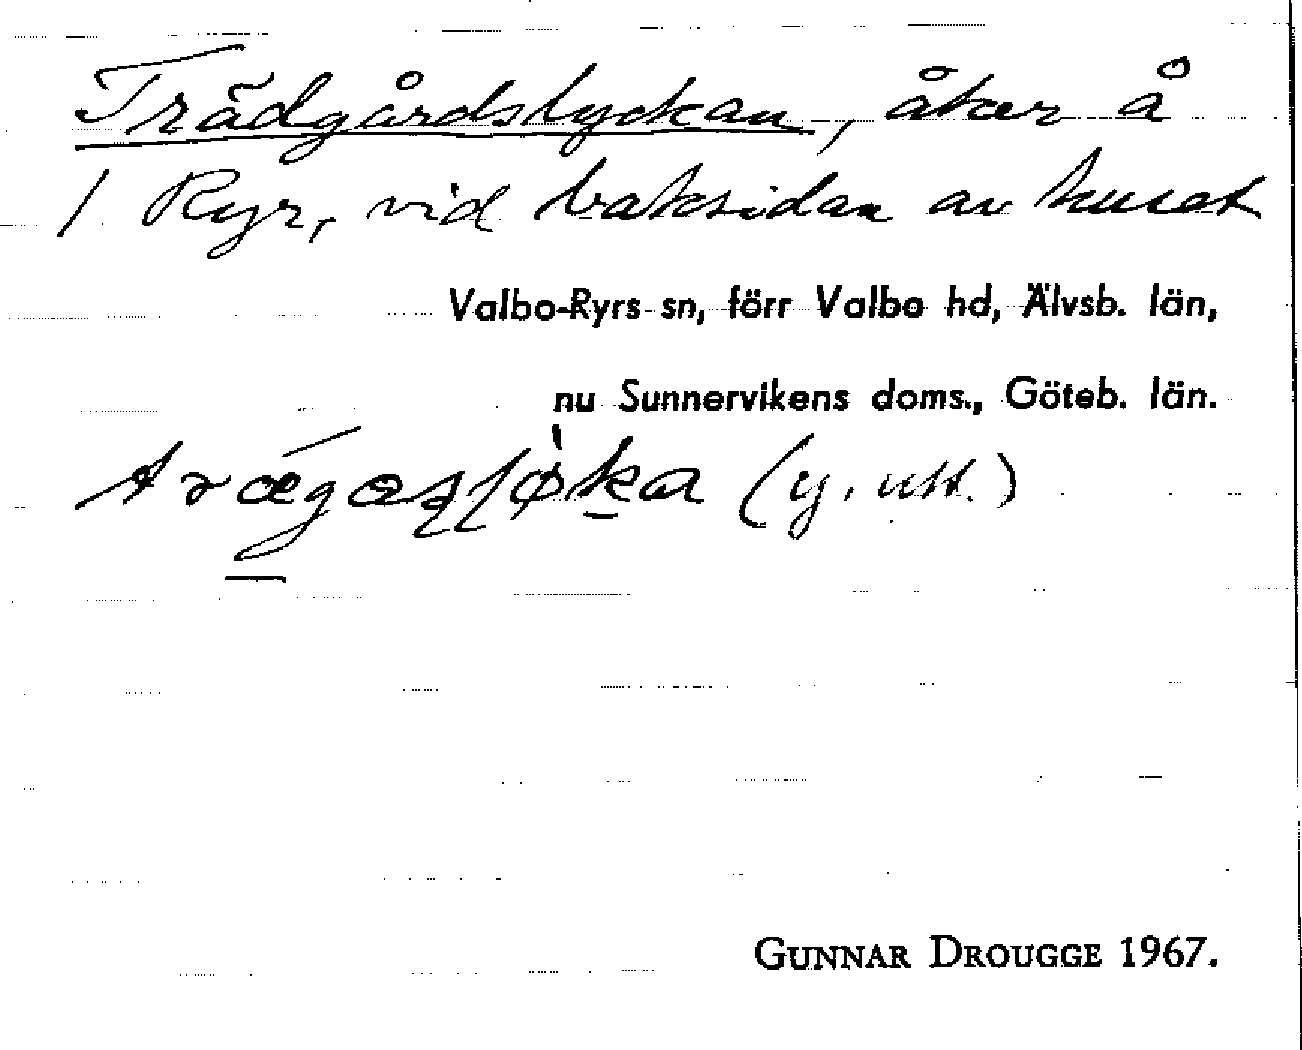 Trädgårdslyckan, åker å
1 Ryr, vid baksidan av huset
Valbo-Ryrs sn, förr Valbo hd, Älvsb. län,
nu Sunnervikens doms., Göteb. län.
(y. utt.)
GUNNAR DROUGGE 1967.